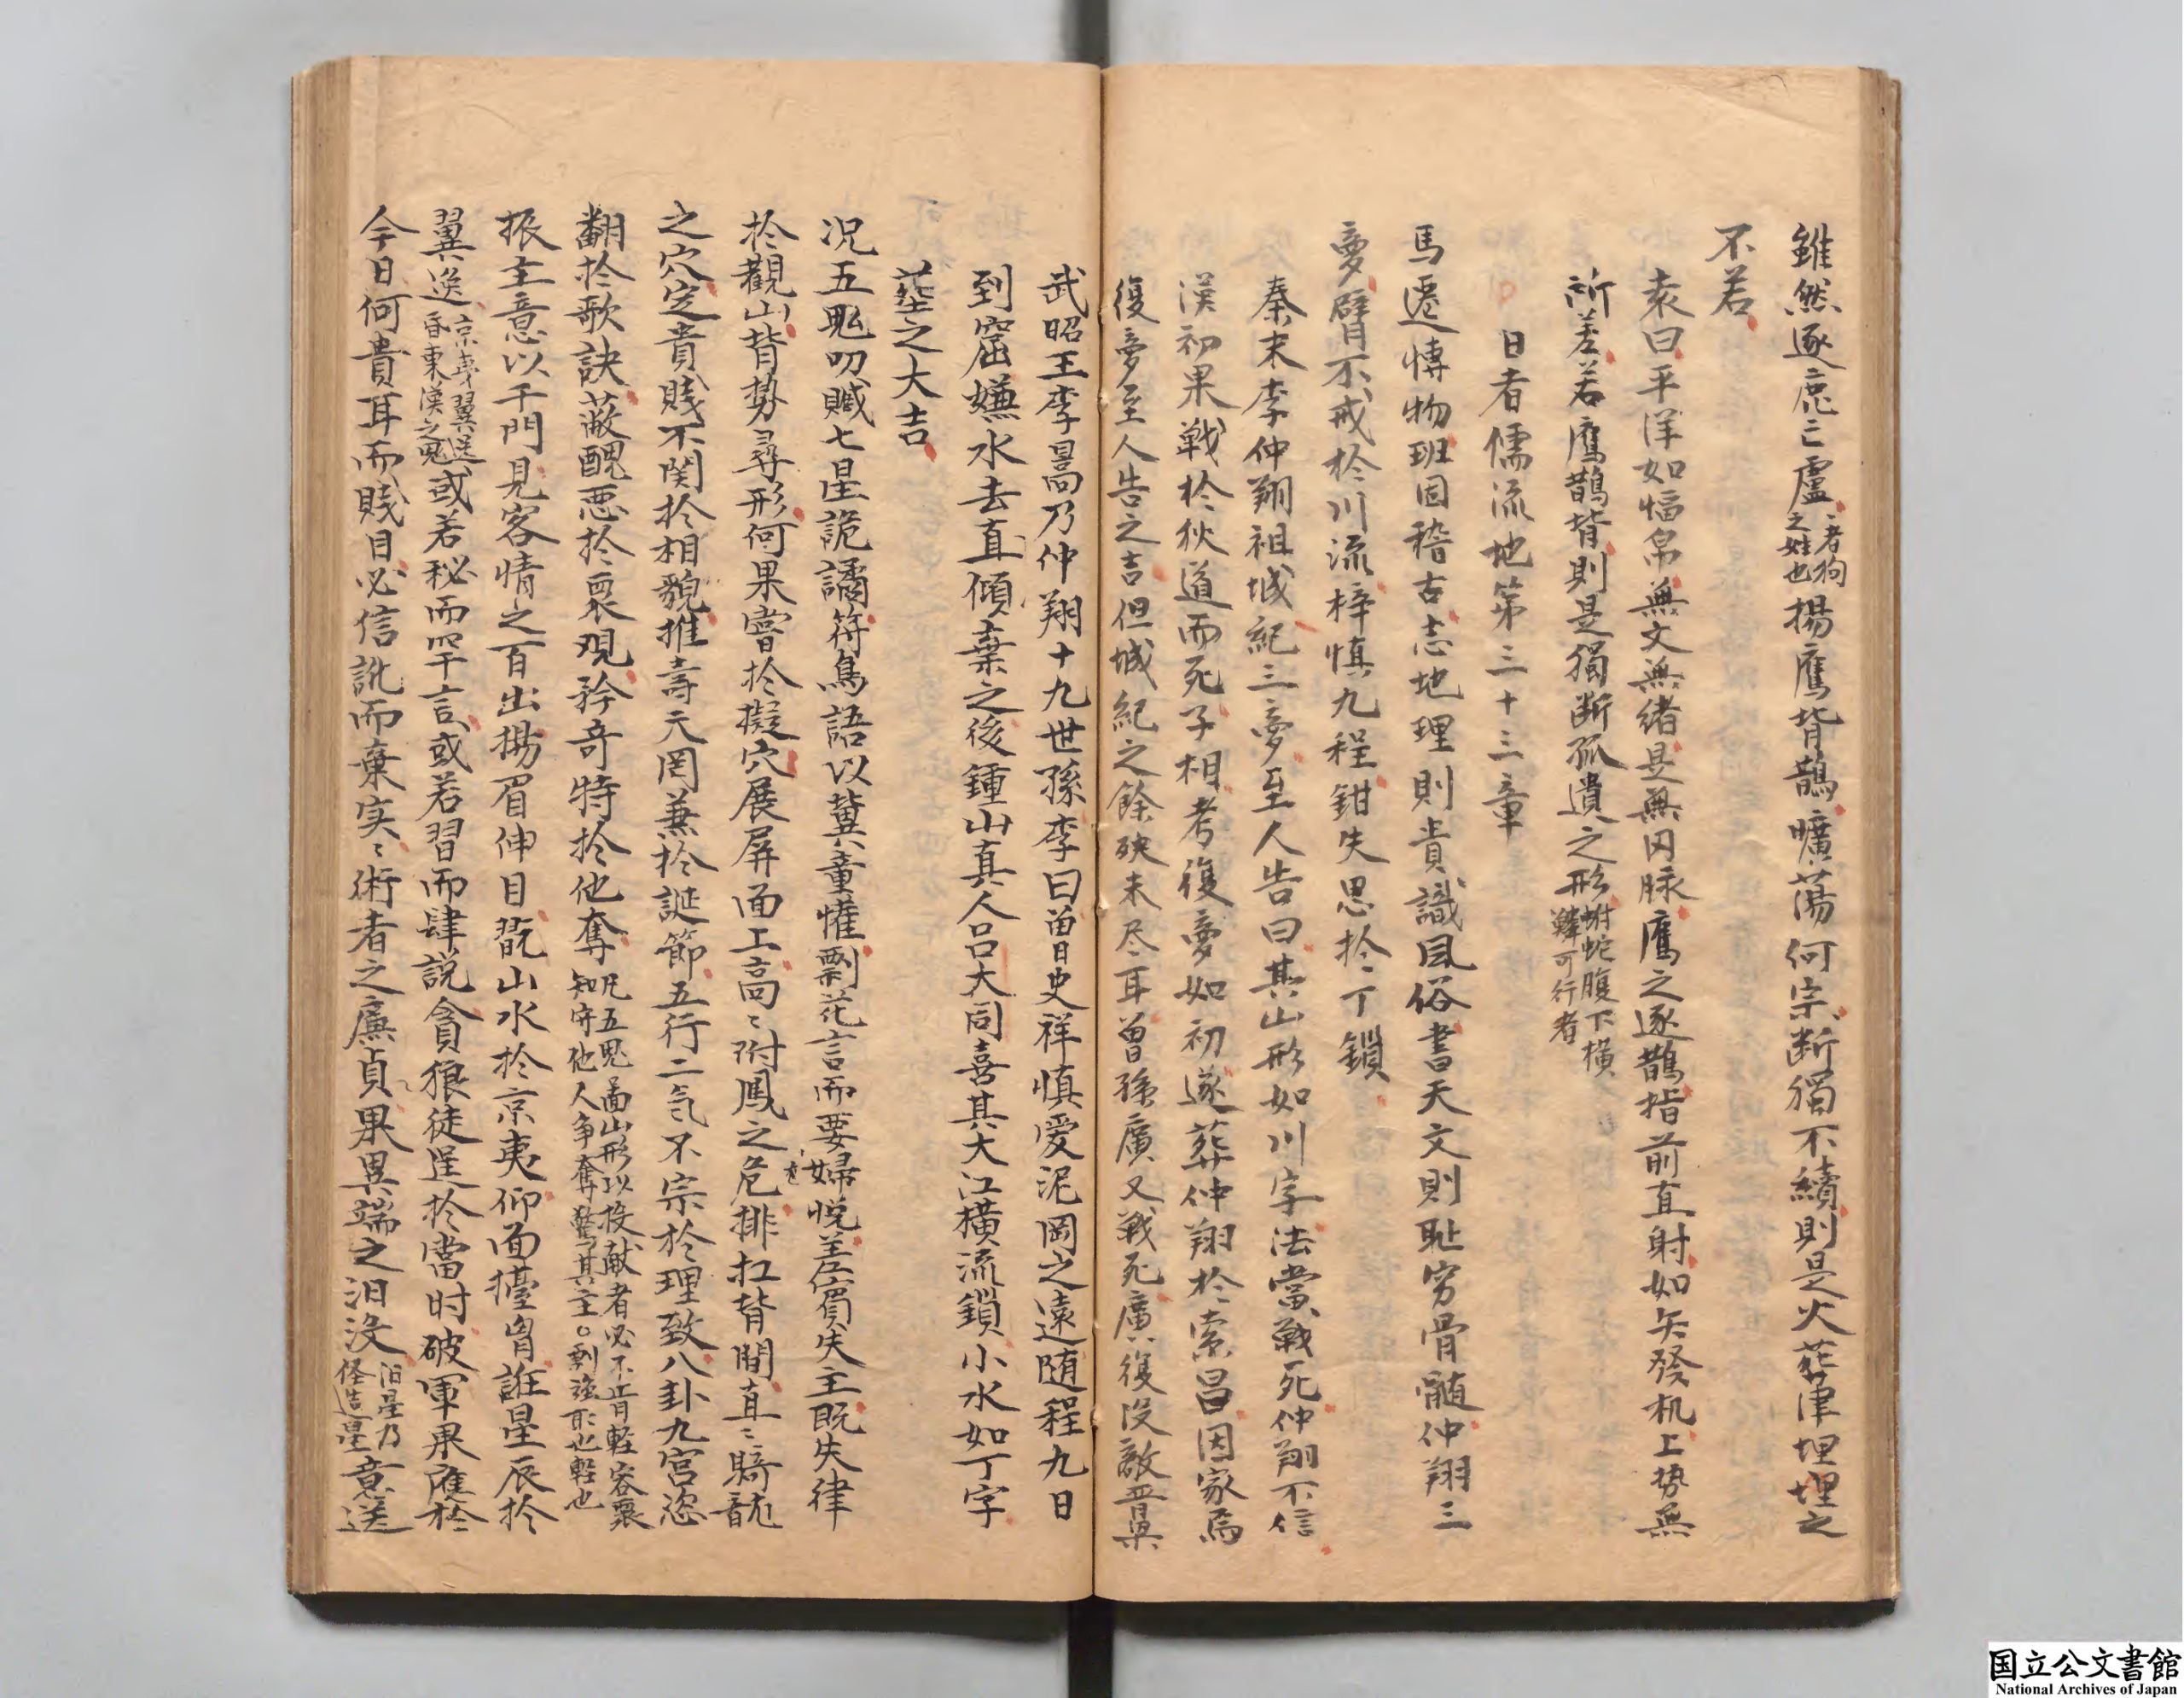 雖然逐鹿亡盧者狗之姓也揚鷹背鵲曠蕩何宗断獨不續則是火葬津埋埋之
不若
袁曰平洋如幅帛無文無緒是無冈脉鷹之逐鵲指前直射如矢發机上势無
所差若鷹鵲背則是獨断孤遺之形蚹蛇腹下横鱗可行者
日者儒流地第三十三章
馬遷博物班固稽古志地理則貴識風俗書天文則耻穷骨髄仲翔三
夢臂不戒於川流梓慎九程鉗失思於丁鎖
秦末李仲翔祖城紀三夢至人告曰其山形如川字法當戦死仲翔不信
漢初果戦於狄道而死子相考復夢如初遂葬仲翔於素昌因家焉
復夢至人告之吉但城紀之餘殃未尽耳曾孫廣又戦死廣復没敵
武昭王李暠乃仲翔十九世孫李曰曽日史祥慎愛泥岡之遠随程九日
到窟嫌水去直傾棄之後鍾山真人呂大同喜其大江横流鎖小水如丁字
葬之大吉
况五鬼叨贓七星詭譎符鳥語以冀童懽剽花言而要婦悦羞賓失主既失律
於觀山背势尋形何果嘗於擬穴展屏面上高〻附鳳之危排扛背間直〻騎龍
之穴定貴賤不関於相貌推壽元罔兼於誕節五行二氣不宗於理致八卦九宮恣
翻於歌訣蔽醜悪於裏观矜奇特於他奪凡五鬼画山形以投献者必不肯軽容裏知守他人争奪驚其主○剽強取也軽也
振主意以千門見客情之百出揚眉伸目翫山水於京夷仰面擡胷誑星辰於
翼逸京夷翼逸昏東漢之鬼或若秘而罕言或若習而肆説貪狼徒逞於當时破軍果應於
今日何貴耳而賤目必信訛而棄实〻術者之廉貞果異端之汨没汨星乃怪造星意送
国立公文書館
National Archives of Japan